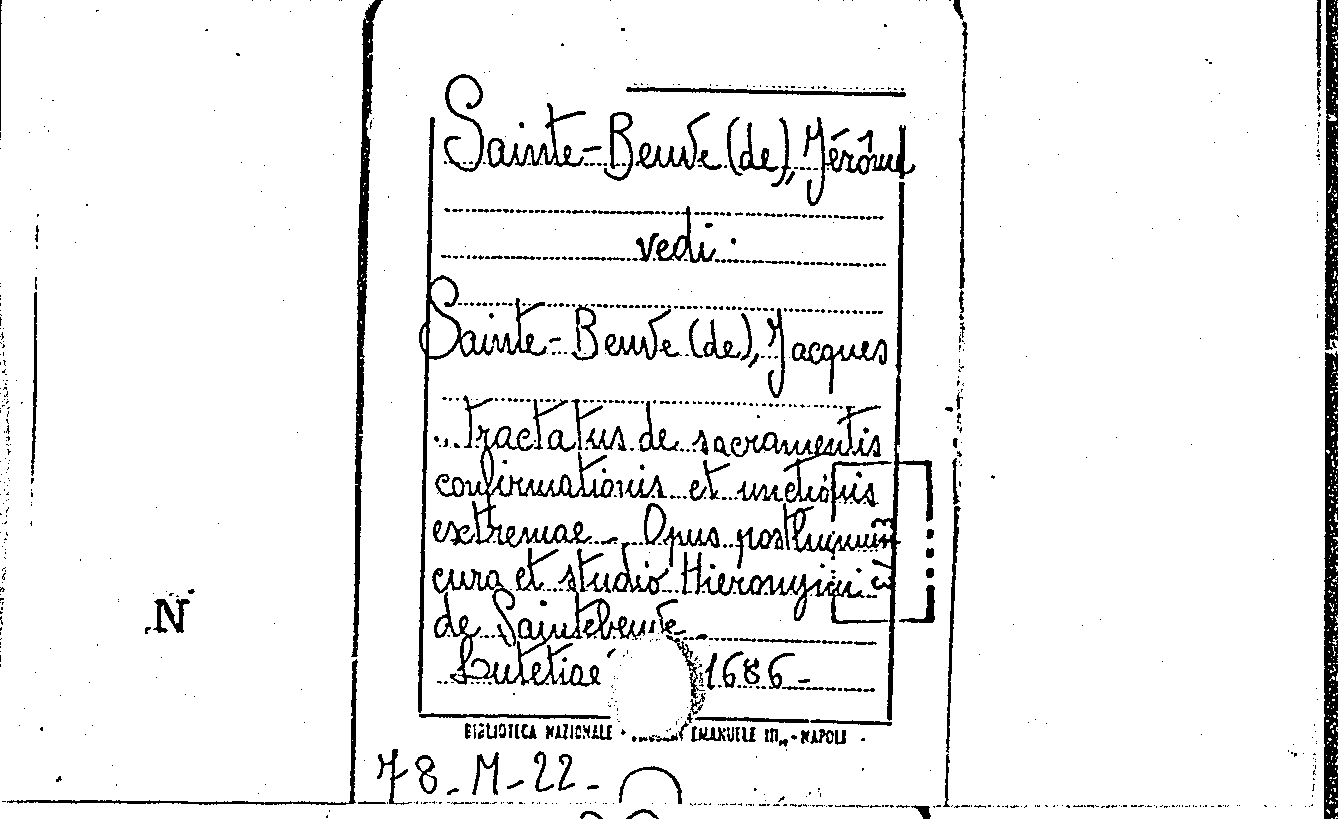 Sainte-Beuve (de), Jérôme
vedi:
Sainte-Beuve (de), Jacques
...tractatus de sacramentis
confirmationis et unctionis
extremae - Opus posthumum
cura et studio Hieronymi
de Saintebeuve.
Lutetiae 1686-
BIBLIOTECA NAZIONALE EMANUELE III - NAPOLI
78-M-22-
N